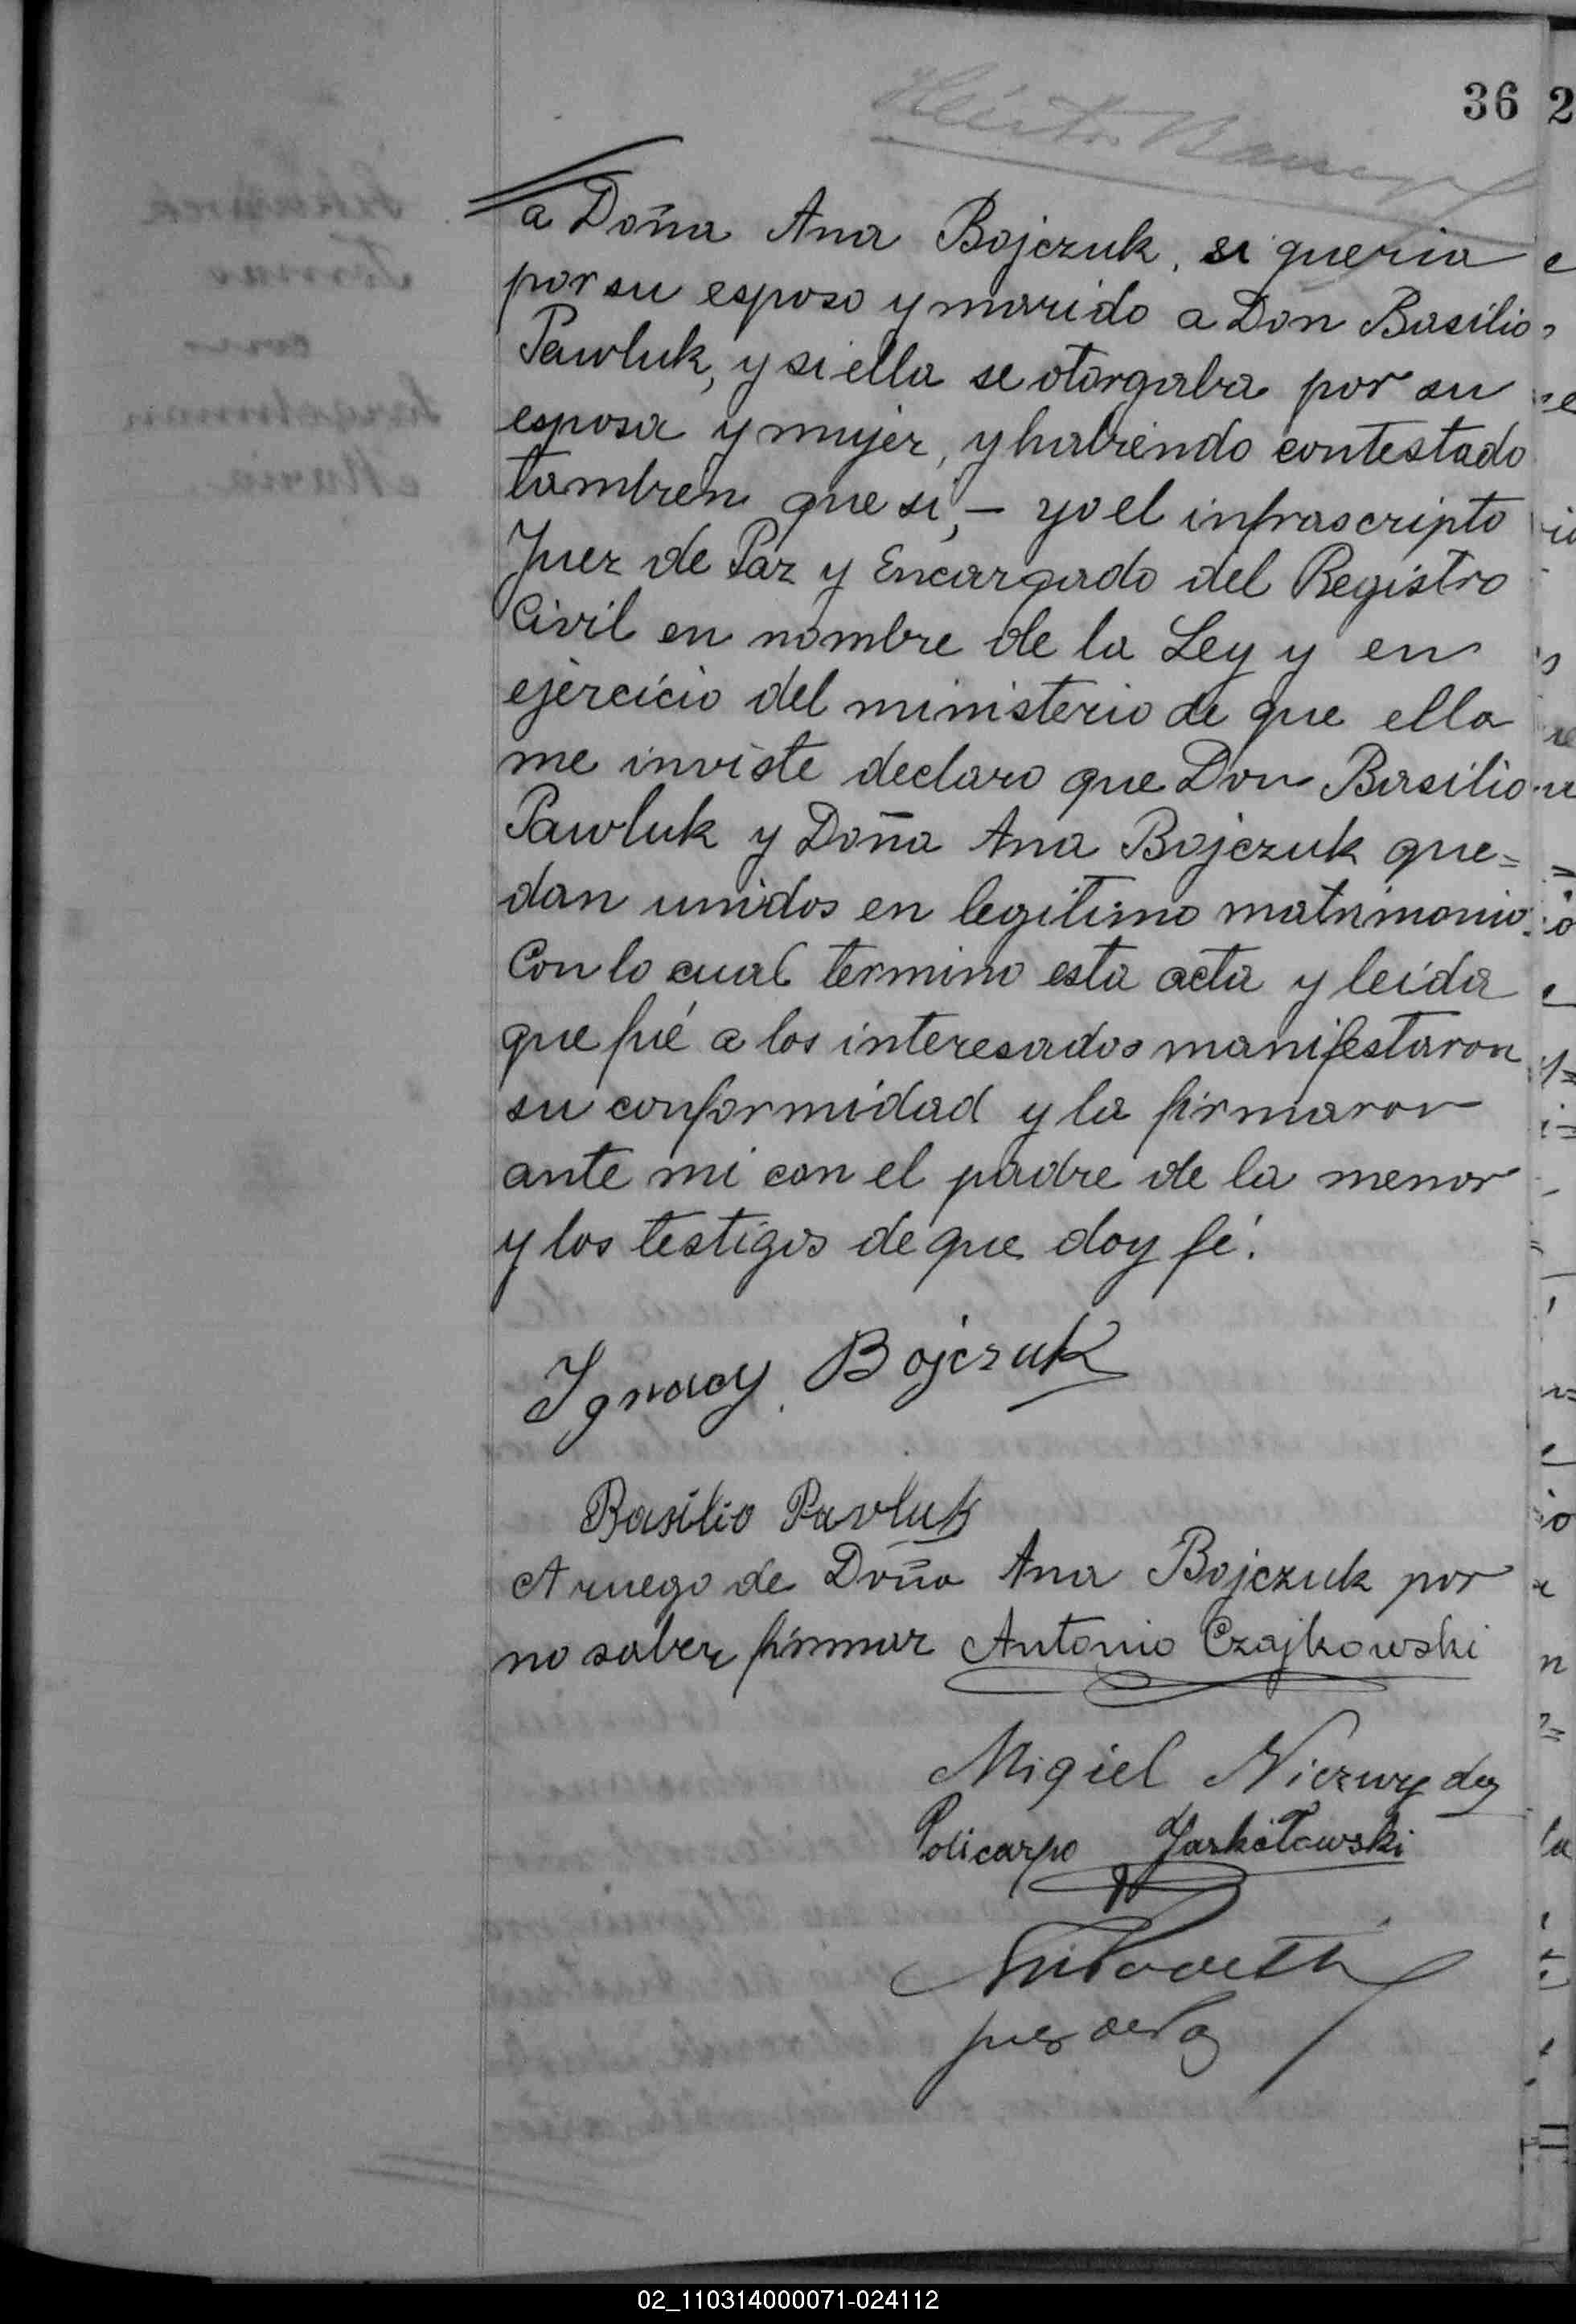 36
a Doña Ana Bojczuk, si queria
por su esposo y marido a Don Basilio
Pawluk, y si ella se otorgaba por su
esposa y mujer, y habiendo contestado
tambien que si, – yo el infrascripto
Juez de Paz y Encargado del Registro
Civil en nombre de la Ley y en
ejercicio del ministerio de que ella
me inviste declaro que Don Basilio
Pawluk y Doña Ana Bojczuk que=
dan unidos en legitimo matrimonio.
Con lo cual termino esta acta y leida
que fué a los interesados manifestaron
su conformidad y la firmaron
ante mi con el padre de la menor
y los testigos de que doy fé.
Ignacy Bojczuk
Basilio Pavluk
A ruego de Doña Ana Bojczuk por
no saber firmar Antonio Czajkowski
Migiel
Policarpo
juez de Paz
02_110314000071-024112